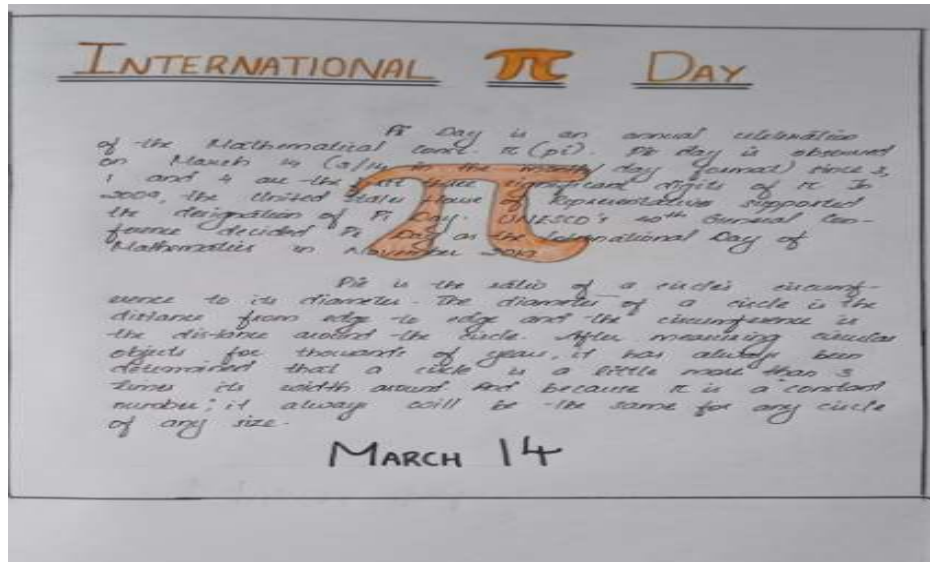 INTERNATIONAL π DAY
Pi Day is an annual celebration
of the Mathematical const. π (pi). Pi day is observed
on March 14 (3/14 in the month/day format) since 3,
1 and 4 are the first three significant digits of π. In
2009, the United States House of Representatives supported
the designation of Pi Day. UNESCO's 40th General Con-
ference decided Pi Day as the International Day of
Mathematics in November
Pi is the ratio of a circles circumf-
erence to its diameter. The diameter of a circle is the
distance from edge to edge and the circumference is
the distance around the circle. After measuring circular
objects for thousands of years, it has always been
determined that a circle is a little more than 3
times its width around And because π is a constant
number; it always will be the same for any circle
of any size.
MARCH 14